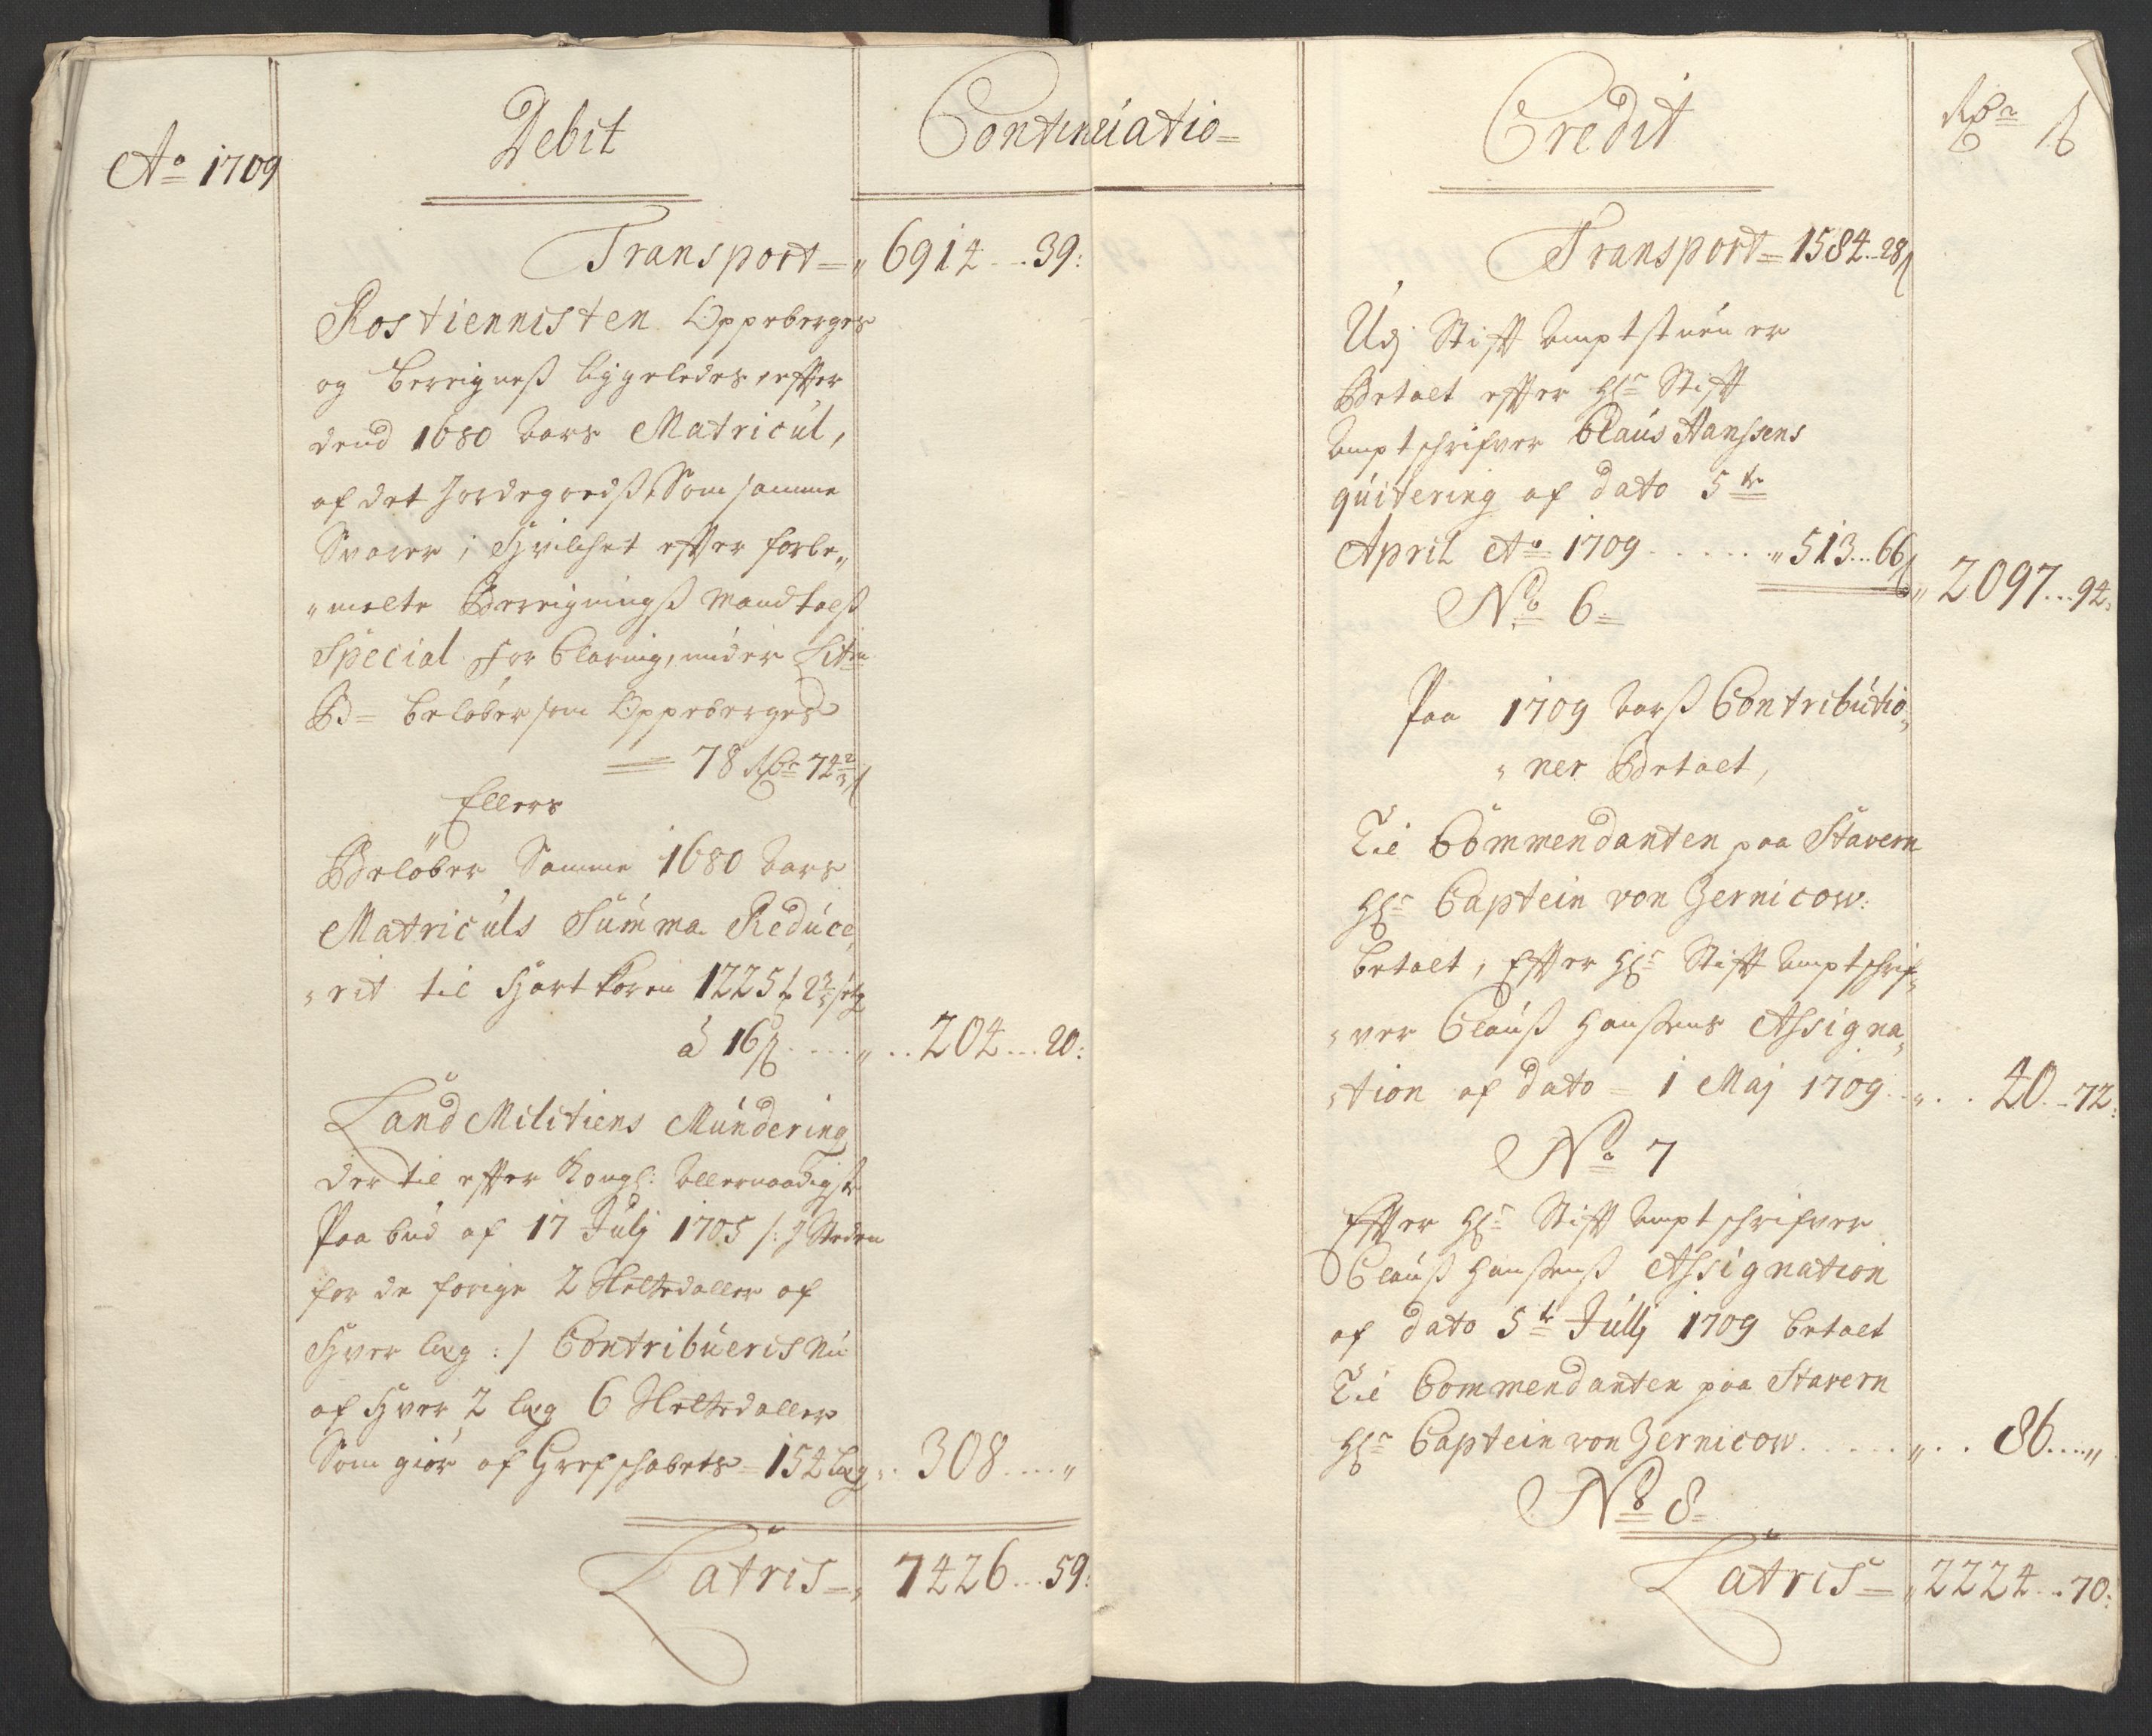 Ao 1709
Debit
Continuatio
Transport = 6914 - 39:
Rostiennisten Oppeberges
og bereignes liggeledes effter
dend 1680 Aars Matricul,
af det Jordegodß, Som samme
Svarer, Hvilchet effter forbe„
„melte Bereignings Mandtalß
Special forklaring, under Litra
B = beløber som Oppeberges
= 78 Rdr 74 2/3 ß
Ellers
Beløber Samme 1680 Aars
Matriculs Summa Reduce„
„rit til Hartkoren 1225 t 2 3/5 setg
à 16 ß .... 204 ... 20:
Land Militiens Mundering
der til effter Kongl: Allernaadigste
Paabud af 17 Julj 1705 /: J Steden
for de forige 2 Sletedaller af
Hver leg :/ Contribueris Nu
af Hver 2 leg 6 Sletedaller
Som giør af Grefschabets = 154 leg .. 308 .... „
Latris = 7426 ... 59:
Credit
Rdr ß
Transport = 1584 .. 28 ß
Udj Stifft Amptstuen er
Betalt effter Hr Stifft
Amptschrifver Claus Hanssens
quitering af dato 5te
April Ao 1709 ...... 513 ... 66 ß
2097 ... 94:
No 6
Paa 1709 Aarß Contributio„
„ner Betalt,
Til Commendanten paa Stavern
Hr Captein von Zernicow:
betalt, Effter Hr Stifft Amptschrif„
„ver Clauß Hanßens Assigna„
„tion af dato = 1 Maj 1709 .. 40 .. 72:
No 7
Effter Hr Stifft Amptschrifver
Clauß Hanßenß Assignation
af dato 5te Jullj 1709 betalt
Til Commendanten paa Stavern
Hr Captein von Zernicow ...... 86 .... „
No 8
Latris = 2224 .. 70: